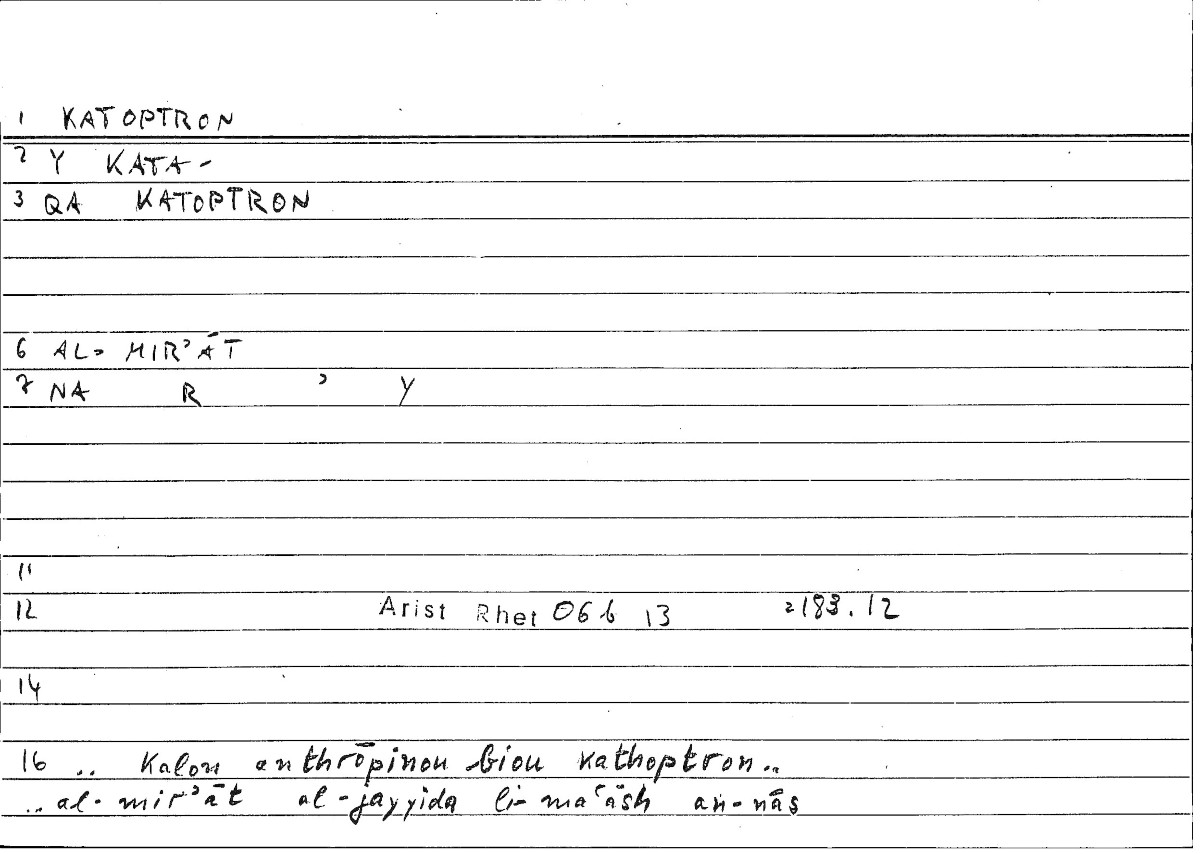 1 KATOPTRON
2 Y KATA-
3 QA KATOPTRON
6 AL- MIRʾĀT
7 NA R ʾ Y
11
12 Arist Rhet 06b 13 =183.12
14
16 .. Kalon anthrōpinou biou kathoptron..
..al-mirʾāt al-jayyida li-maʿāsh an-nās